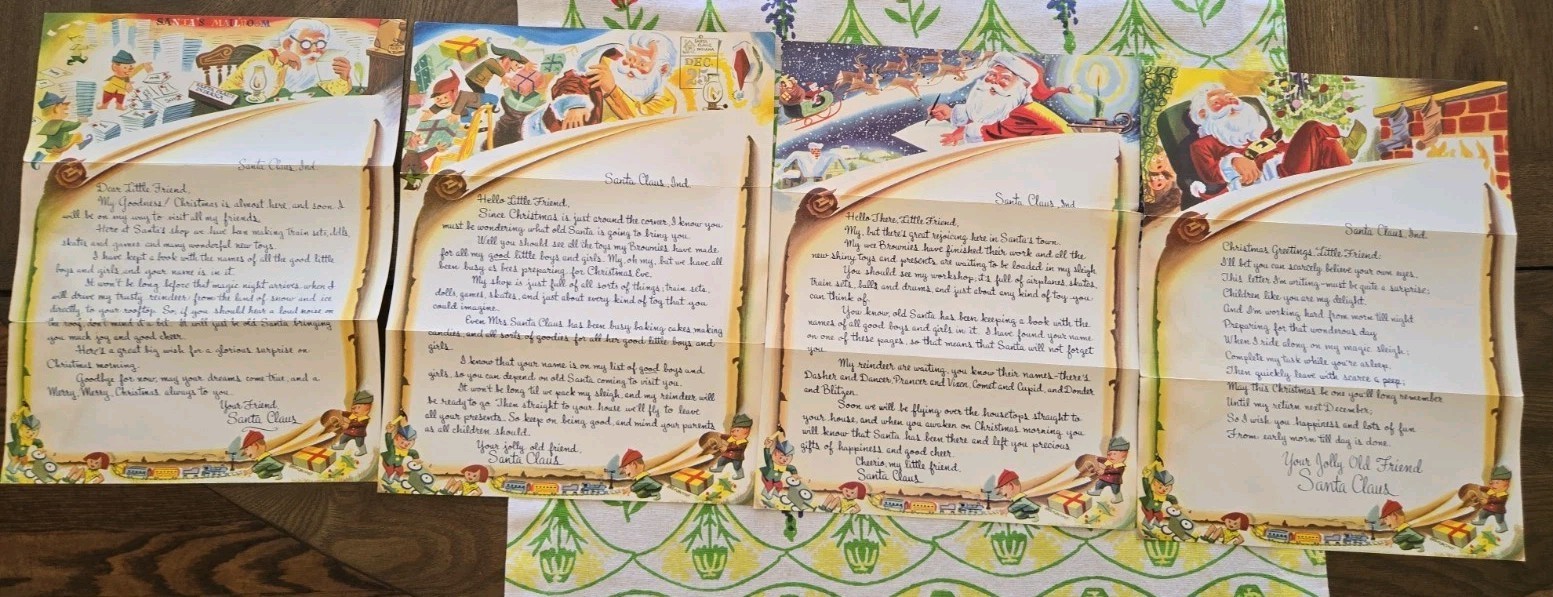 SANTA'S MAIL ROOM
Santa Claus, Ind.
Dear Little Friend,
My Goodness! Christmas is almost here, and soon I
will be on my way to visit all my friends.
Here at Santa's shop we have been making train sets, dolls,
skates and games and many wonderful new toys.
I have kept a book with the names of all the good little
boys and girls, and your name is in it.
It won't be long before that magic night arrives, when I
will drive my trusty reindeer from the land of snow and ice
directly to your rooftop. So, if you should hear a loud noise on
the roof, don't mind it a bit. It will just be old Santa bringing
you much joy and good cheer.
Here's a great big wish for a glorious surprise on
Christmas morning.
Goodbye for now, may your dreams come true, and a
Merry, Merry, Christmas always to you.
Your Friend,
Santa Claus
SANTA CLAUS
INDIANA
DEC
25
Santa Claus, Ind.
Hello Little Friend,
Since Christmas is just around the corner, I know you
must be wondering what old Santa is going to bring you.
Well you should see all the toys my Brownies have made
for all my good little boys and girls. My, oh my, but we have all
been busy as bees preparing for Christmas Eve.
My shop is just full of all sorts of things; train sets,
dolls, games, skates, and just about every kind of toy that you
could imagine.
Even Mrs Santa Claus has been busy baking cakes, making
candies, and all sorts of goodies for all her good little boys and
girls.
I know that your name is on my list of good boys and
girls, so you can depend on old Santa coming to visit you.
It won't be long 'til we pack my sleigh, and my reindeer will
be ready to go. Then straight to your house we'll fly to leave
all your presents. So keep on being good, and mind your parents
as all children should.
Your jolly old friend,
Santa Claus
Santa Claus, Ind.
Hello There, Little Friend,
My, but there's great rejoicing here in Santa's town.
My wee Brownies have finished their work and all the
new shiny toys and presents are waiting to be loaded in my sleigh.
You should see my workshop; it's full of airplanes, skates,
train sets, balls and drums, and just about any kind of toy you
can think of.
You know, old Santa has been keeping a book with the
names of all good boys and girls in it. I have found your name
on one of these pages, so that means that Santa will not forget
you.
My reindeer are waiting, you know their names—there's
Dasher and Dancer, Prancer and Vixen, Comet and Cupid, and Donder
and Blitzen.
Soon we will be flying over the housetops, straight to
your house, and when you awaken on Christmas morning, you
will know that Santa has been there and left you precious
gifts of happiness, and good cheer.
Cheerio, my little friend.
Santa Claus
Santa Claus, Ind.
Christmas Greetings, Little Friend:
I'll bet you can scarcely believe your own eyes,
This letter I'm writing—must be quite a surprise;
Children like you are my delight
And I'm working hard from morn till night
Preparing for that wonderous day
When I ride along on my magic sleigh;
Complete my task while you're asleep,
Then quickly leave with scarce a peep;
May this Christmas be one you'll long remember
Until my return next December;
So I wish you happiness and lots of fun
From early morn till day is done.
Your Jolly Old Friend
Santa Claus